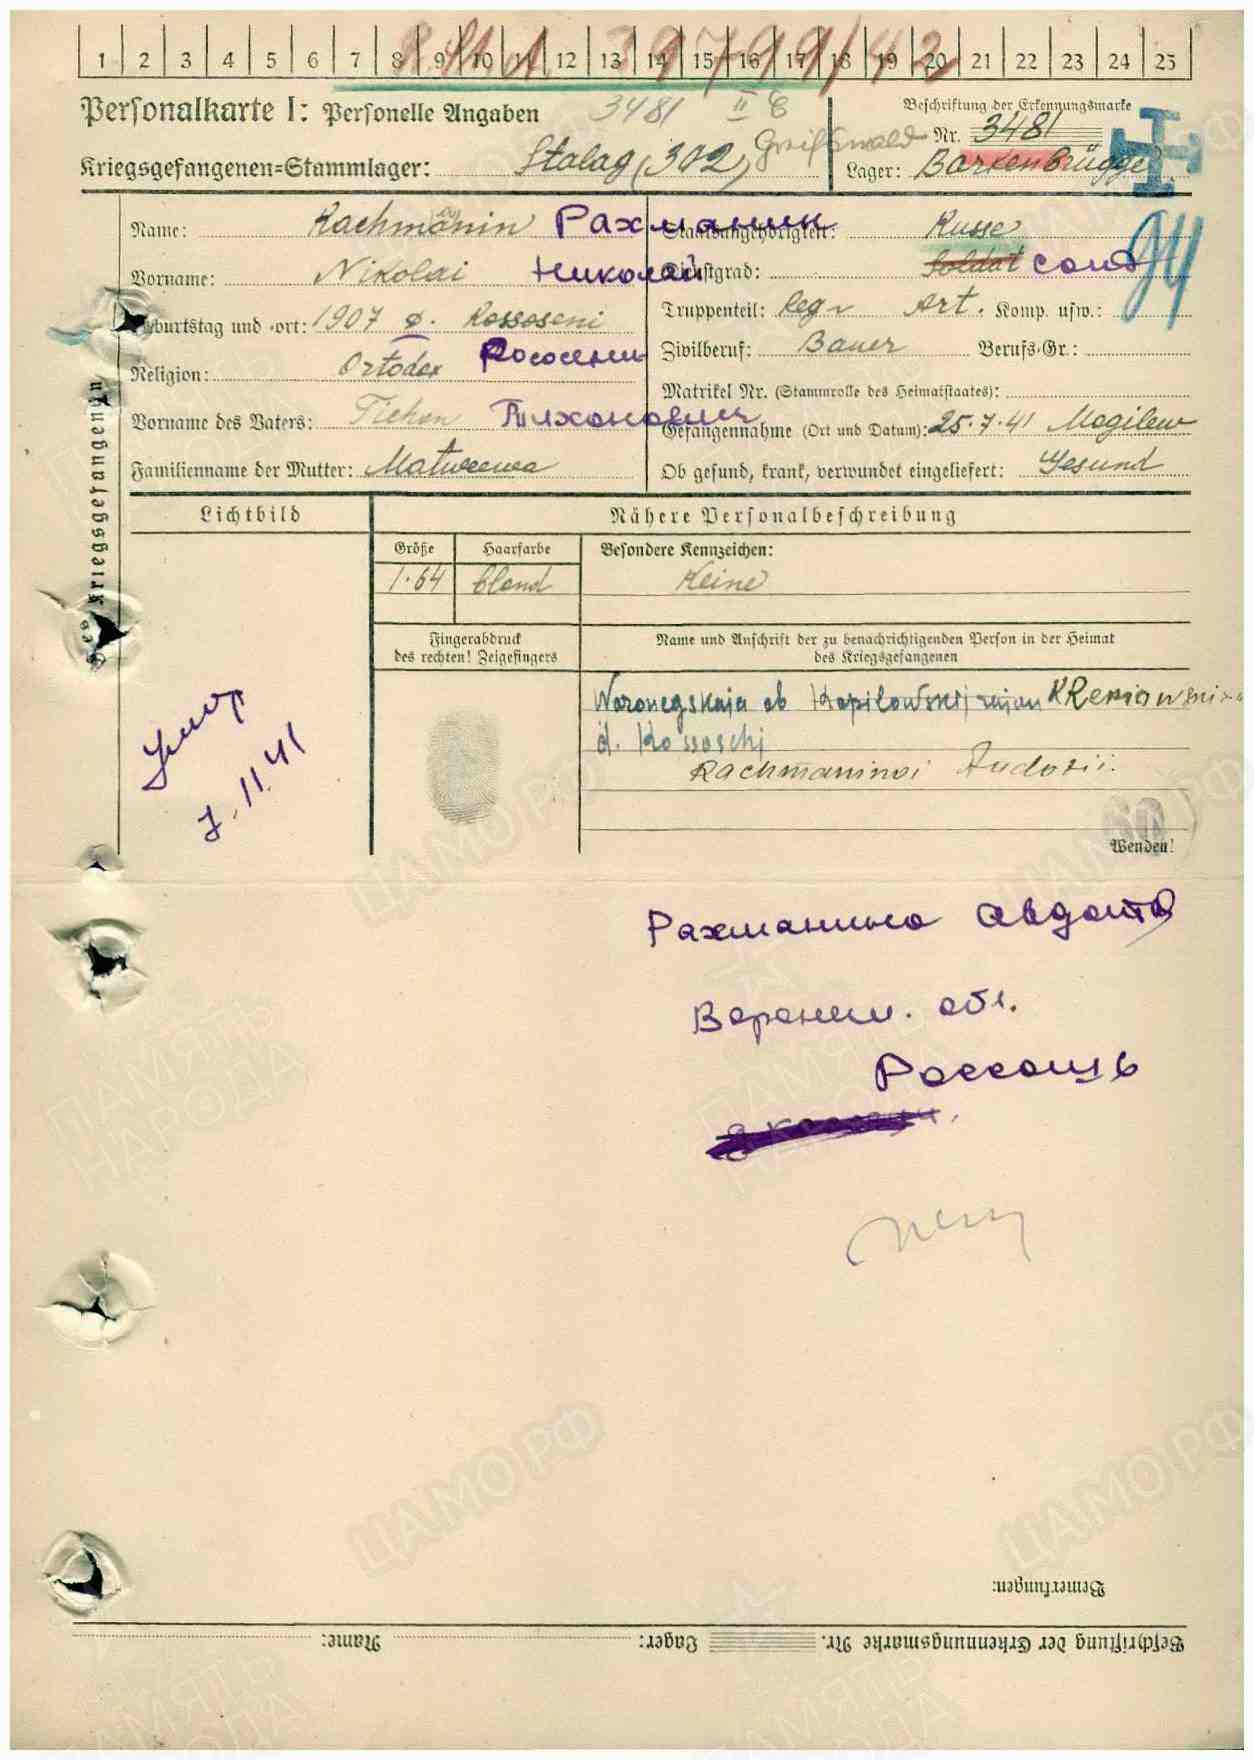 1 2 3 4 5 6 7 8 9 10 11 12 13 14 15 16 17 18 19 20 21 22 23 24 25
39799/42
Personalkarte I: Personelle Angaben
3481 II C
Beschriftung der Erkennungsmarke
Nr. 3481
Kriegsgefangenen=Stammlager: Stalag (302) Greifswald
Lager: Barkenbrügge
Name: Rachmanin Рахманин
Staatsangehörigkeit: Russe
Vorname: Nikolai Николай
Dienstgrad: Soldat солд
94
Geburtstag und -ort: 1907 d. Rossoseni
Truppenteil: Regr Art. Komp. usw.:
Religion: Ortodox Рососени
Zivilberuf: Bauer Berufs-Gr.:
Matrikel Nr. (Stammrolle des Heimatstaates):
Vorname des Vaters: Tichon Тихонович
Gefangennahme (Ort und Datum): 25.7.41 Mogilew
Familienname der Mutter: Matweewa
Ob gesund, krank, verwundet eingeliefert: Gesund
Des Kriegsgefangenen
Lichtbild
Nähere Personalbeschreibung
Größe Haarfarbe Besondere Kennzeichen:
1.64 blond Keine
Fingerabdruck
des rechten! Zeigefingers
Name und Anschrift der zu benachrichtigenden Person in der Heimat
des Kriegsgefangenen
Woronegskaja ob
d. Rossoschi
Rachmaninoi
Wenden!
Умер
7.11.41
Рахманина Авдотья
Воронеж. обл.
Россошь
Bemerkungen:
Beschriftung der Erkennungsmarke Nr. Lager: Name:
ЦАМО РФ
ПАМЯТЬ
НАРОДА